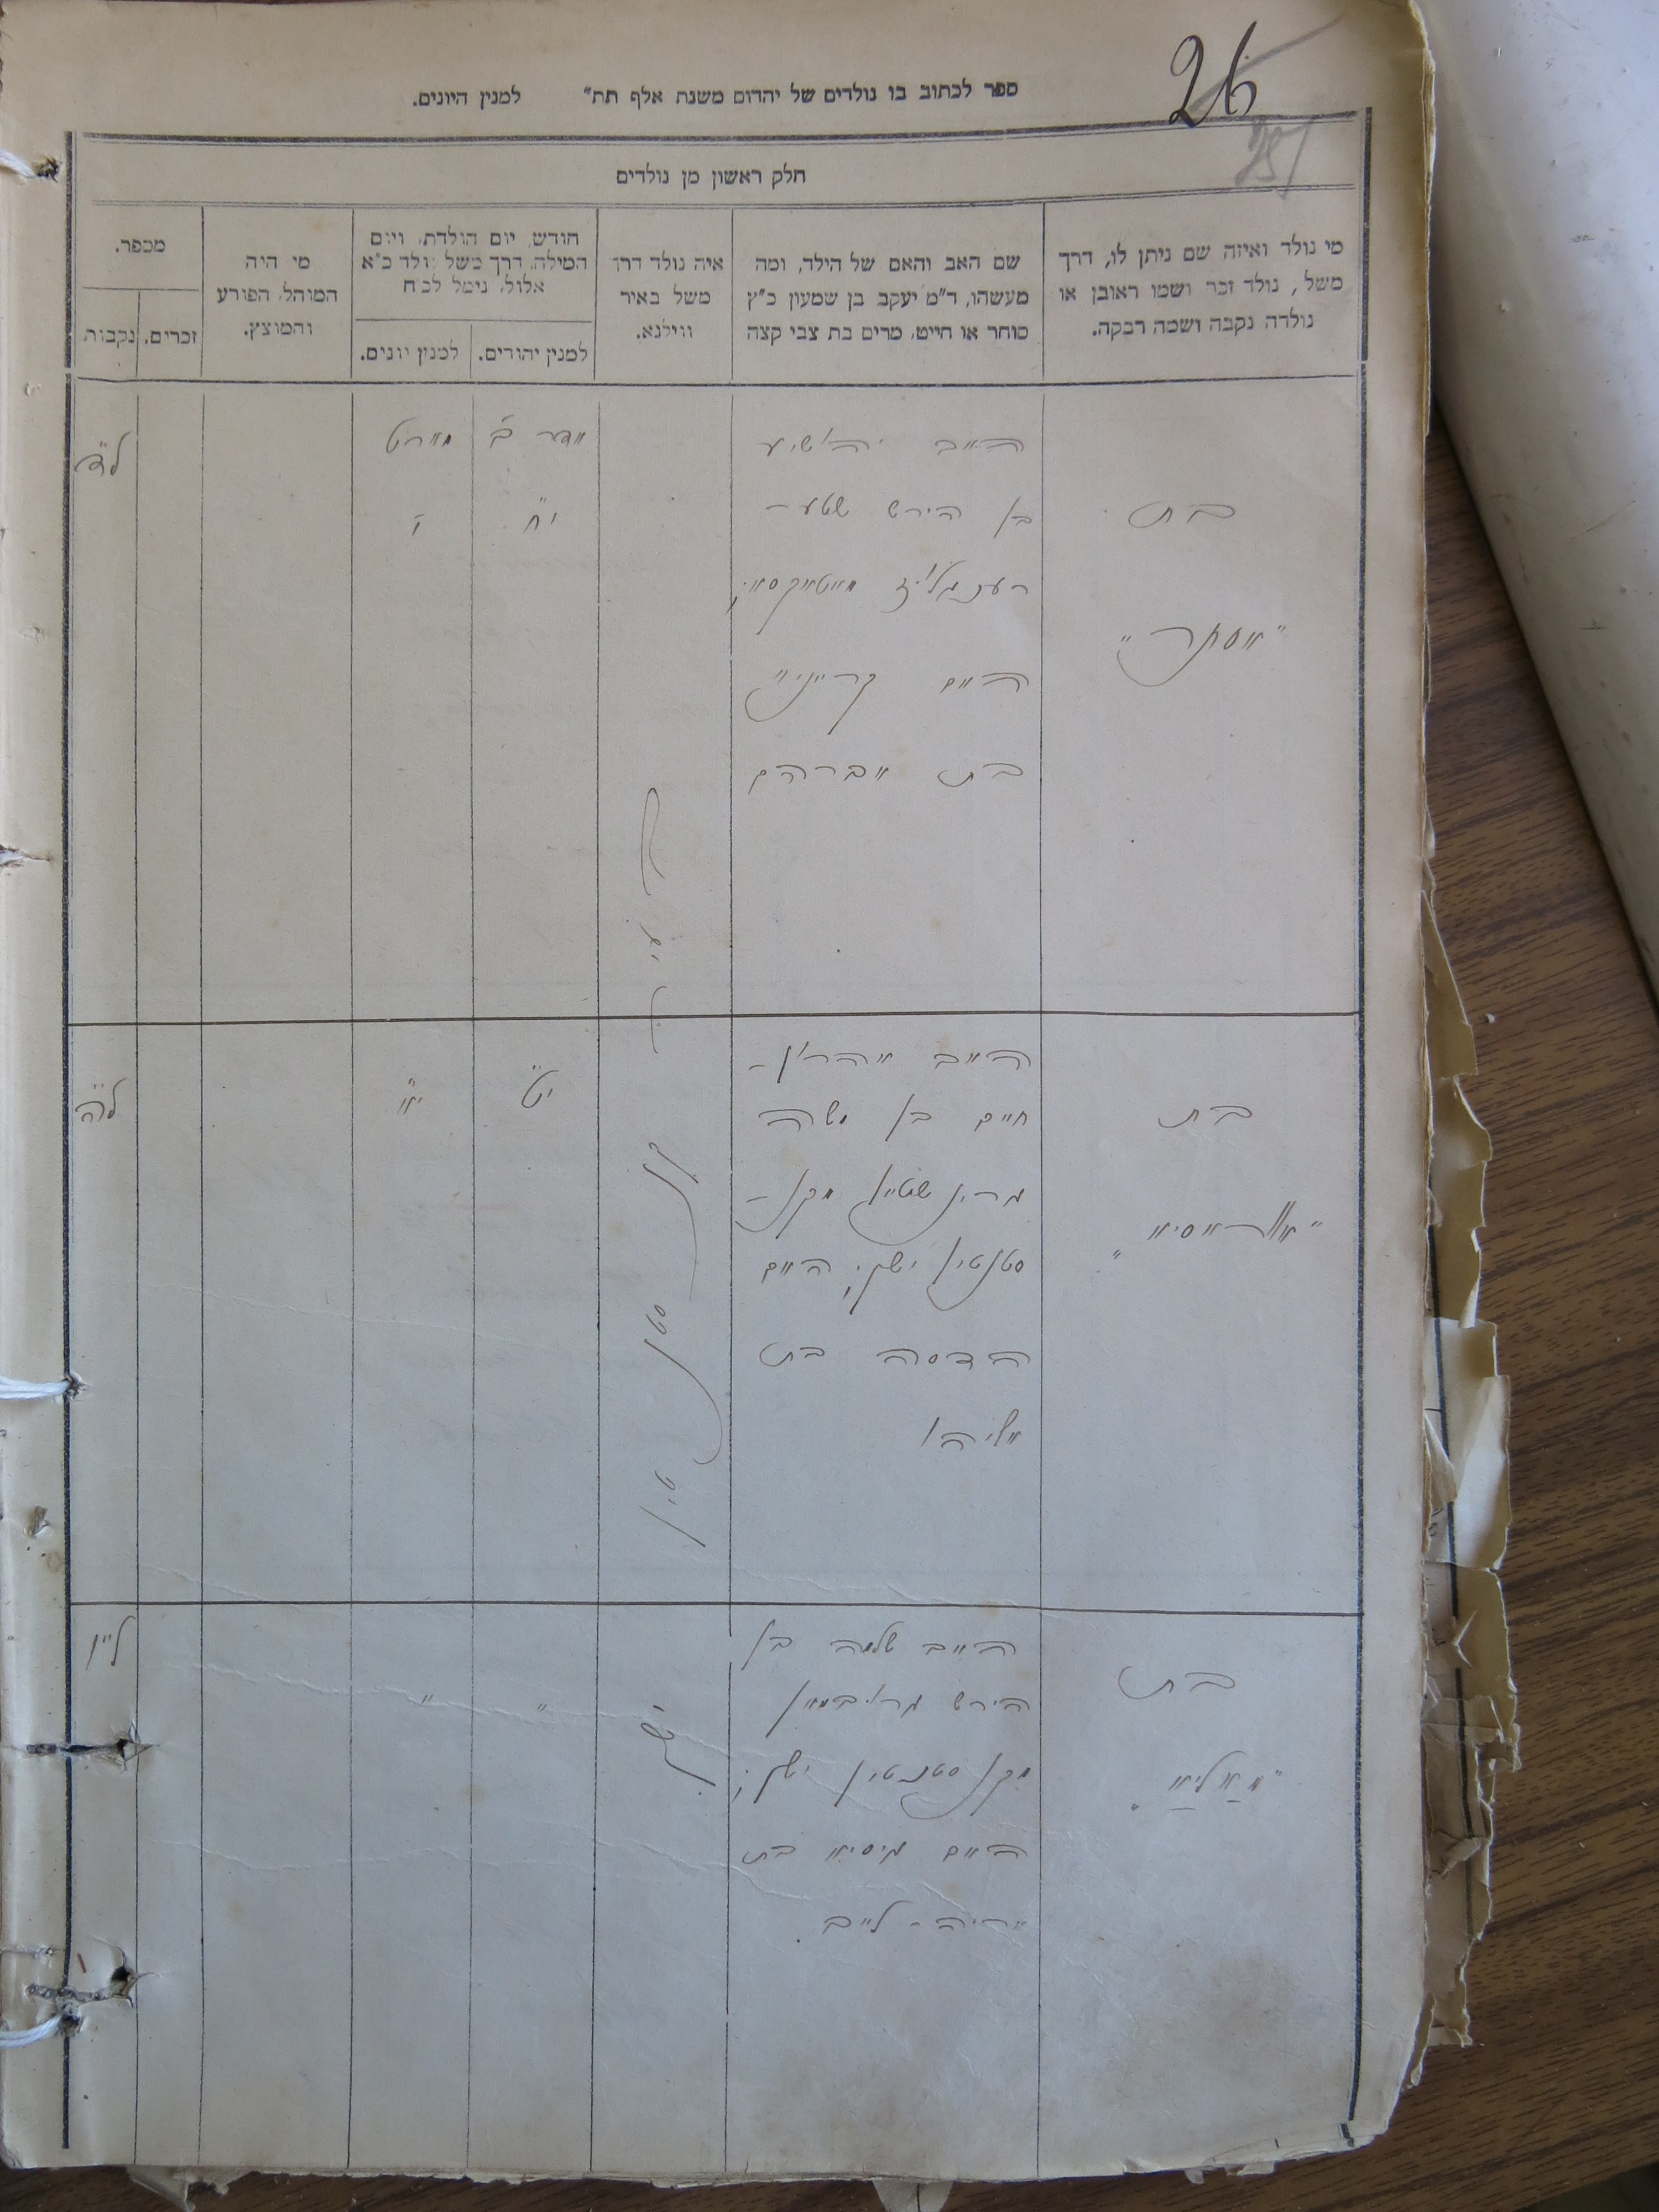 26
25
ספר לכתוב בו נולדים של יהדום משנת אלף תת" למנין היונים.
חלק ראשון מן נולדים
מי נולד ואיזה שם ניתן לו, דרך
משל, נולד זכר ושמו ראובן או
נולדה נקבה ושמה רבקה.
שם האב והאם של הילד, ומה
מעשהו, ד"מ יעקב בן שמעון כ"ץ
סוחר או חייט, מרים בת צבי קצה
איה נולד דרך
משל באיר
ווילנא.
חודש, יום הולדת, ויום
המילה, דרך משל נולד כ"א
אלול, נימל לכ"ח
למנין יהודים.
למנין יונים.
מי היה
המוהל, הפורע
והמוצץ.
מספר.
זכרים.
נקבות
בת
"אסתר"
האב יהושיע
בן הירש שטע-
האם
בת אברהם
אדר ב'
י"ח
מארט
ל"ד
בעיר
קאנ
סטאנ
טין
ישן
בת
האב אהרון-
חיים בן משה
שטיין מקאנ-
סטנטין ישן; האם
הדסה בת
אליהו
י"ט
י"א
ל"ה
בת
האב שלמה בן
הירש גרויבמאן
מקאנסטנטין ישן;
האם מיסיא בת
אריה-לייב.
"
"
ל"ו